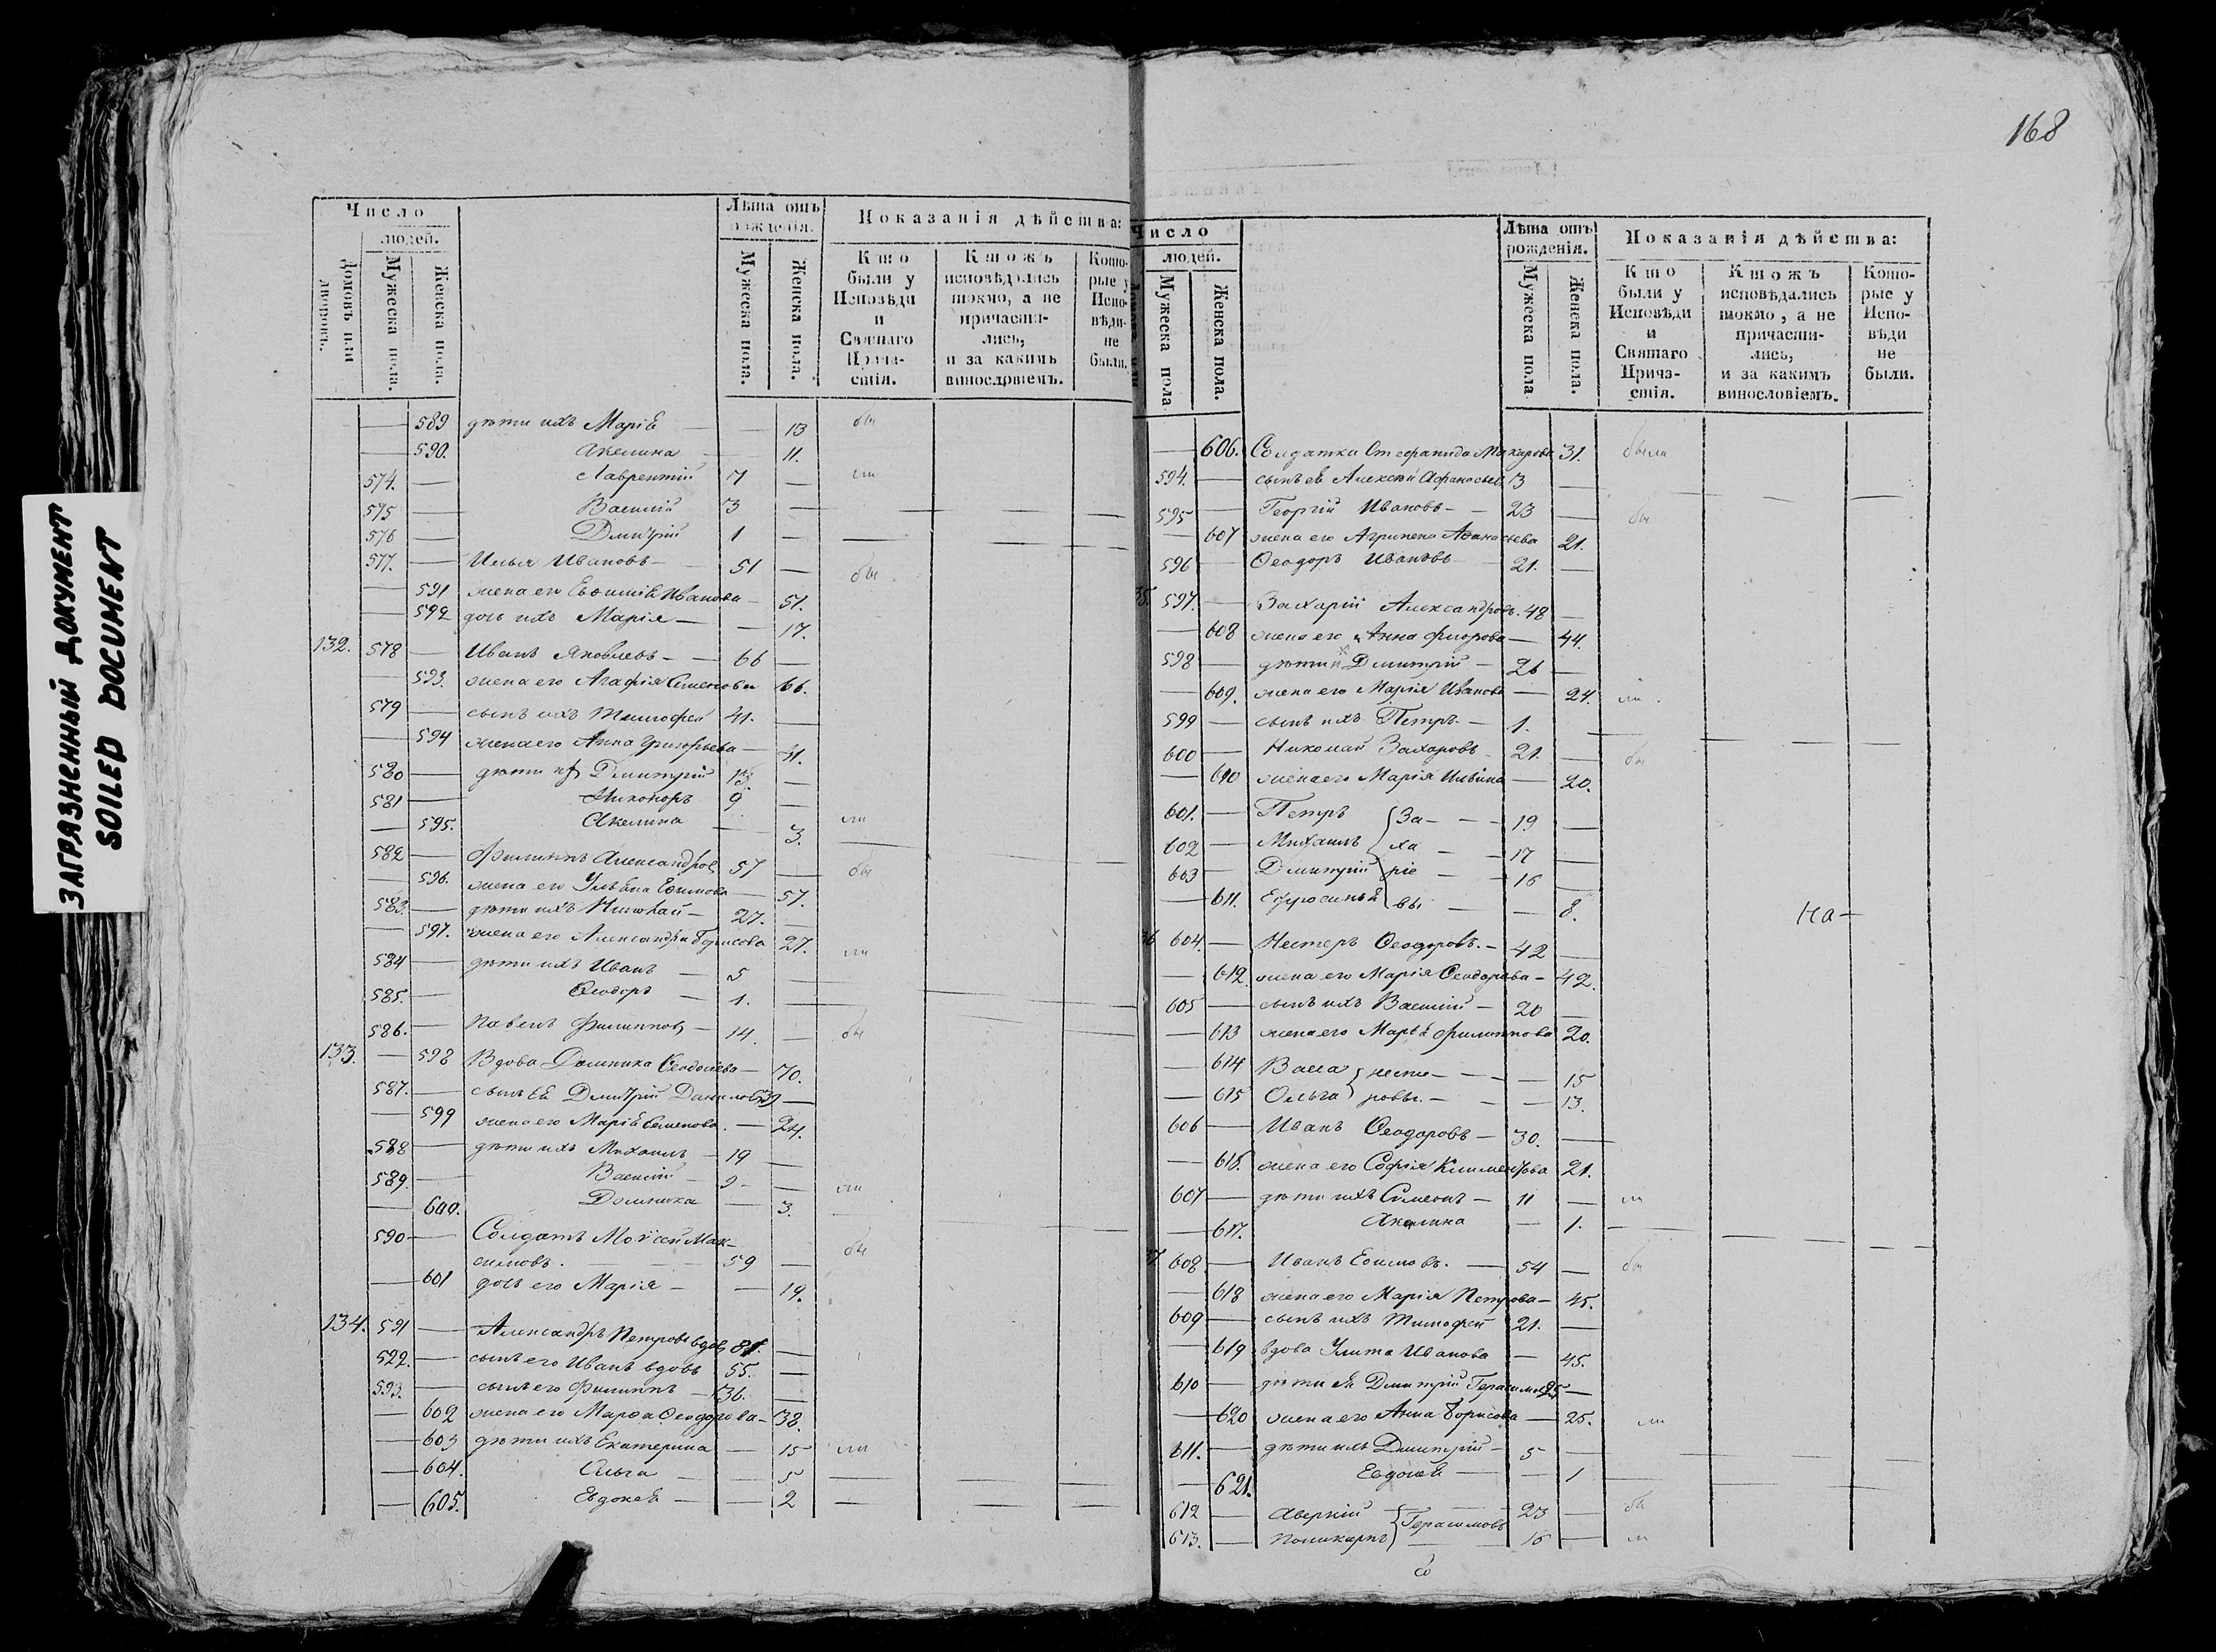 ЗАГРЯЗНЕННЫЙ ДОКУМЕНТ
SOILED DOCUMENT
Число
людей.
Домовъ или дворовъ.
Мужеска пола.
Женска пола.
Лѣта отъ рожденія.
Мужеска пола.
Женска пола.
Показанія дѣйства:
Кто были у Исповѣди и Святаго Прича-стія.
Ктожъ исповѣдались токмо, а не причасти-лись, и за какимъ винословіемъ.
Кото-рые у Испо-вѣди не были.
589 дѣти ихъ Марія — 13 бы
590. Акелина 11.
574. — Лаврентій 7 — ли
575 — Василій 3 —
576 — Дмитрій 1 —
577. — Илья Ивановъ — 51 — бы
591 жена его Евфимія Иванова — 51.
592 дочь ихъ Марія — — 17.
132. 578 — Иванъ Яковлевъ — — 66 —
593. жена его Агафія Семенова 66.
579 — сынъ ихъ Тимофей 41. —
594 жена его Анна Григорьева — 41.
580 — дѣти их Дмитрій 13. —
581 — Никоноръ 9 —
595. Акелина — 3. ли
582 — Филиппъ Александров 57 — бы
596. жена его Ульяна Ефимова — 57.
583. — дѣти ихъ Николай — 27. —
597. жена его Александра Борисова 27. ли
584 — дѣти ихъ Иванъ — 5
585. — Ѳеодоръ — 1. —
586. — Павелъ Филиппов — 14. — бы
133. — 598 Вдова Домника Ѳеодосіева — 70.
587. — сынъ ея Дмитрій Данилов 39 —
599 жена его Марія Семенова. — 24.
588 — дѣти ихъ Михаилъ — 19 —
589. — Василій — 9 — ли
600. Домника — 3.
590 — Солдатъ Моѵсей Мак-
симовъ. — 59 — бы
601 дочь его Марія — — 19.
134. 591 — Александръ Петровъ вдов 81. —
592. — сынъ его Иванъ вдовъ 55. —
593. — сынъ его Филиппъ — 36. —
602 жена его Марѳа Ѳеодорова — 38.
603 дѣти ихъ Екатерина — 15 ли
604. Ольга — — 5
605. Евдокея — — 2
168
Число
людей.
Мужеска пола
Женска пола.
Лѣта отъ рожденія.
Мужеска пола
Женска пола.
Показанія дѣйства:
Кто были у Исповѣди и Святаго Прича-стія.
Ктожъ исповѣдались токмо, а не причасти-лись, и за какимъ винословіемъ.
Кото-рые у Испо-вѣди не были.
— 606. Солдатка Стефанида Макарова 31. была
594. — сынъ ея Алексѣй Афанасьев. 13 —
595 — Георгій Ивановъ — — 23 — бы
— 607 жена его Агрипена Аѳанасьева 21.
596 — Ѳеодоръ Ивановъ 21. —
35. 597. — Захарій Александров. 48 —
— 608 жена его Анна Флорова — 44.
598 — дѣти их Дмитрій — 26 —
— 609. жена его Марія Иванова — 24. ли
599 — сынъ ихъ Петръ. — 1. —
600 — Николай Захаровъ 21. — бы
— 610 жена его Марія Ильина — 20.
601. — Петръ За- — — 19 —
602 — Михаилъ ха — — 17 —
603 — Дмитрій ріе — — 16 —
— 611. Ефросинья вы — — 8.
На —
36 604. — Нестеръ Ѳеодоровъ. — 42 —
— 612. жена его Марія Ѳеодорова — 42.
605 — сынъ ихъ Василій — 20 —
— 613 жена его Марья Филиппова 20.
— 614 Васса несте — — — 15
— 615 Ольга ровы. — — — 13.
606 — Иванъ Ѳеодоровъ — 30. —
— 616. жена его Софія Климентова 21.
607 — дѣти ихъ Симеонъ — 11 — ли
— 617. Акилина — 1. —
37 608. — Иванъ Ефимовъ. — 54 — бы
— 618 жена его Марія Петрова — 45.
609 — сынъ ихъ Тимофей 21. —
— 619 вдова Улита Иванова — 45.
610 — дѣти ея Дмитрій Герасимов 25 —
— 620 жена его Анна Борисова — 25. ли
611. — дѣти ихъ Дмитрій — 5 —
— 621. Евдокея — — 1
612 — Аверкій Герасимовы 23 — бы
613. — Поликарпъ 16 — ли